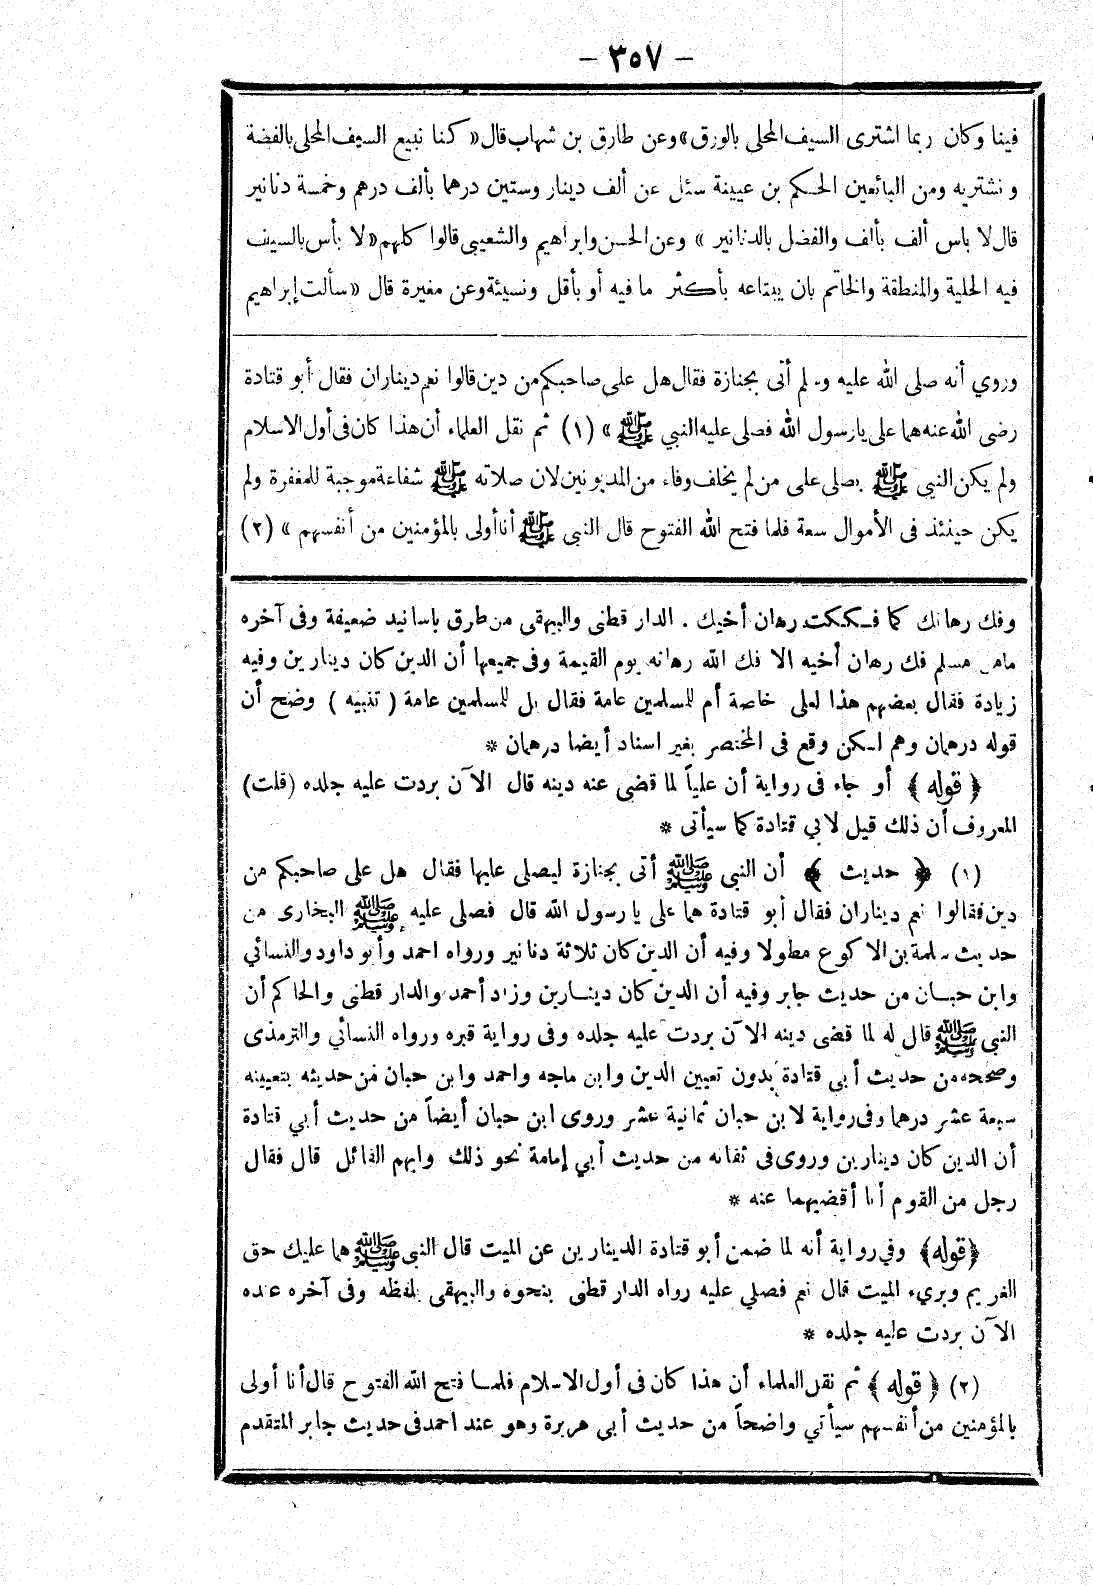 – ٣٥٧ –
فينا وكان ربما اشترى السيف المحلى بالورق» وعن طارق بن شهاب قال « كنا نبيع السيف المحلى بالفضة
ونشتريه ومن البائعين الحكم بن عيينة سئل عن ألف دينار وستين درهما بألف درهم وخمسة دنانير
قال لا باس ألف بألف والفضل بالدنانير » وعن الحسن وابراهيم والشعيبى قالوا كلهم « لا بأس بالسيف
فيه الحلية والمنطقة والخاتم بان يبتاعه بأكثر ما فيه أو بأقل ونسيئة وعن مغيرة قال « سألت إبراهيم
وروي أنه صلى الله عليه وسلم أتى بجنازة فقال هل على صاحبكم من دين قالوا نعم ديناران فقال أبو قتادة
رضى الله عنه هما على يارسول الله فصلى عليه النبي ﷺ » (١) ثم نقل العلماء أن هذا كان فى أول الاسلام
ولم يكن النبي ﷺ يصلى على من لم يخلف وفاء من المديونين لان صلاته ﷺ شفاعة موجبة للمغفرة ولم
يكن حينئذ فى الأموال سعة فلما فتح الله الفتوح قال النبى ﷺ أنا أولى بالمؤمنين من أنفسهم » (٢)
وفك رهانك كما فككت رهان أخيك . الدار قطنى والبيهقى من طرق باسانيد ضعيفة وفى آخره
مامن مسلم فك رهان أخيه الا فك الله رهانه يوم القيمة وفى جميعها أن الدين كان دينارين وفيه
زيادة فقال بعضهم هذا لعلى خاصة أم للمسلمين عامة فقال بل للمسلمين عامة ( تنبيه ) وضح أن
قوله درهمان وهم لكن وقع فى المختصر بغير اسناد أيضا درهمان *
﴿ قوله ﴾ أو جاء فى رواية أن علياً لما قضى عنه دينه قال الآن بردت عليه جلده (قلت)
المعروف أن ذلك قيل لابي قتادة كما سيأتى *
(١) ﴿ حديث ﴾ أن النبى ﷺ أتى بجنازة ليصلى عليها فقال هل على صاحبكم من
دين فقالوا نعم ديناران فقال أبو قتادة هما على يارسول الله قال فصلى عليه ﷺ البخارى من
حديث سلمة بن الاكوع مطولا وفيه أن الدين كان ثلاثة دنانير ورواه احمد وأبو داود والنسائي
وابن حبان من حديث جابر وفيه أن الدين كان دينارين وزاد أحمد والدار قطنى والحاكم أن
النبى ﷺ قال له لما قضى دينه الآن بردت عليه جلده وفى رواية قبره ورواه النسائي والترمذى
وصححه من حديث أبى قتادة بدون تعيين الدين وابن ماجه واحمد وابن حبان من حديثه بتعيينه
سبعة عشر درهما وفى رواية لابن حبان ثمانية عشر وروى ابن حبان أيضاً من حديث أبي قتادة
أن الدين كان دينارين وروى فى ثقاته من حديث أبي إمامة نحو ذلك وابهم القائل قال فقال
رجل من القوم أنا أقضيهما عنه *
﴿قوله﴾ وفي رواية أنه لما ضمن أبو قتادة الدينارين عن الميت قال النبى ﷺ هما عليك حق
الغريم وبريء الميت قال نعم فصلي عليه رواه الدار قطنى بنحوه والبيهقى بلفظه وفى آخره عنده
الآن بردت عليه جلده *
(٢) ﴿ قوله ﴾ ثم نقل العلماء أن هذا كان فى أول الاسلام فلما فتح الله الفتوح قال أنا أولى
بالمؤمنين من أنفسهم سيأتي واضحاً من حديث أبى هريرة وهو عند احمد فى حديث جابر المتقدم